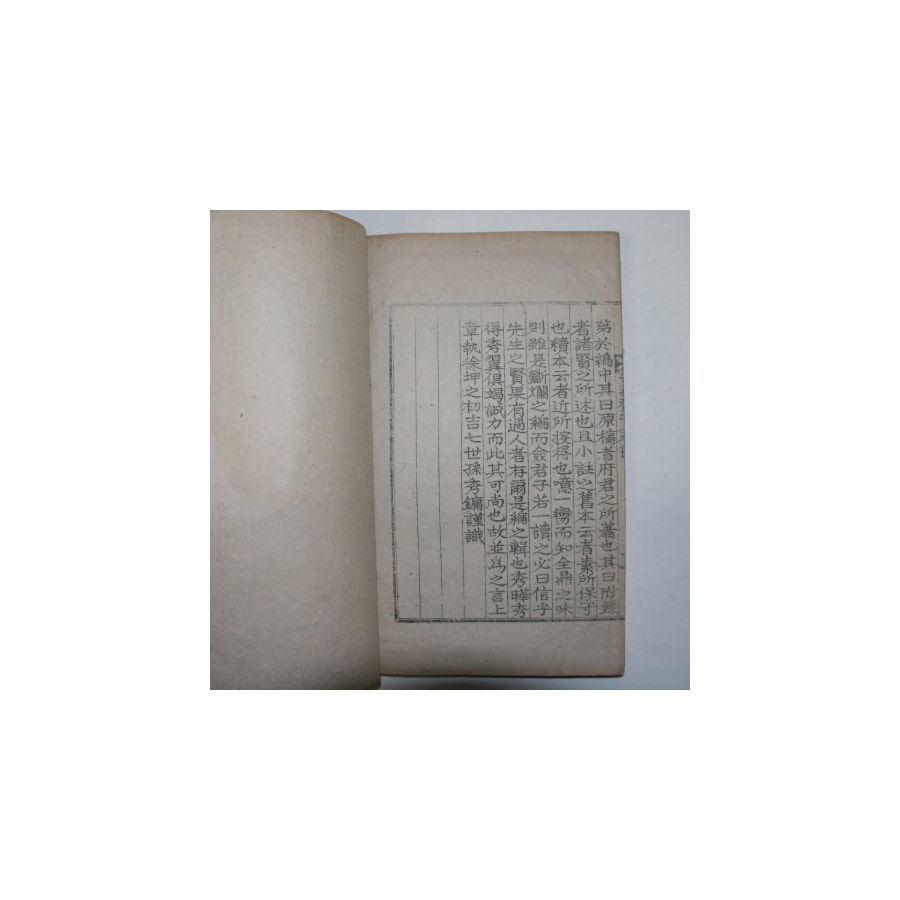 第於編中其曰原稿者府君之所著也其曰附錄
者諸賢之所述也且小註之舊本云者素所保守
也續本云者近所搜得也噫一臠而知全鼎之味
則雖是斷爛之編而僉君子若一讀之必曰信乎
先生之賢果有過人者有爾是編之輯也秀曄秀
得秀翼俱竭誠力而此其可尚也故並爲之言上
章執徐坤之初吉七世孫秀鏞謹識